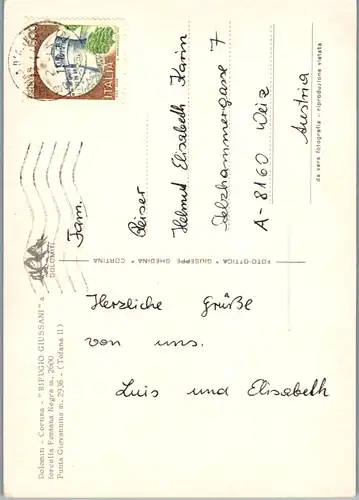 Dolomiti - Cortina - "RIFUGIO GIUSSANI" a
forcella Fontana Negra m. 2600
Punta Giovannina m. 2936 - (Tofana II)
Herzliche Grüße
von uns.
Luis und Elisabeth
FOTO-OTTICA "GIUSEPPE GHEDINA" CORTINA
DOLOMITI
ITALIA
Fam.
Reiser
Helmut Elisabeth Karin
Selzhammergasse 7
A-8160 Weiz
Austria
da vera fotografia - riproduzione vietata